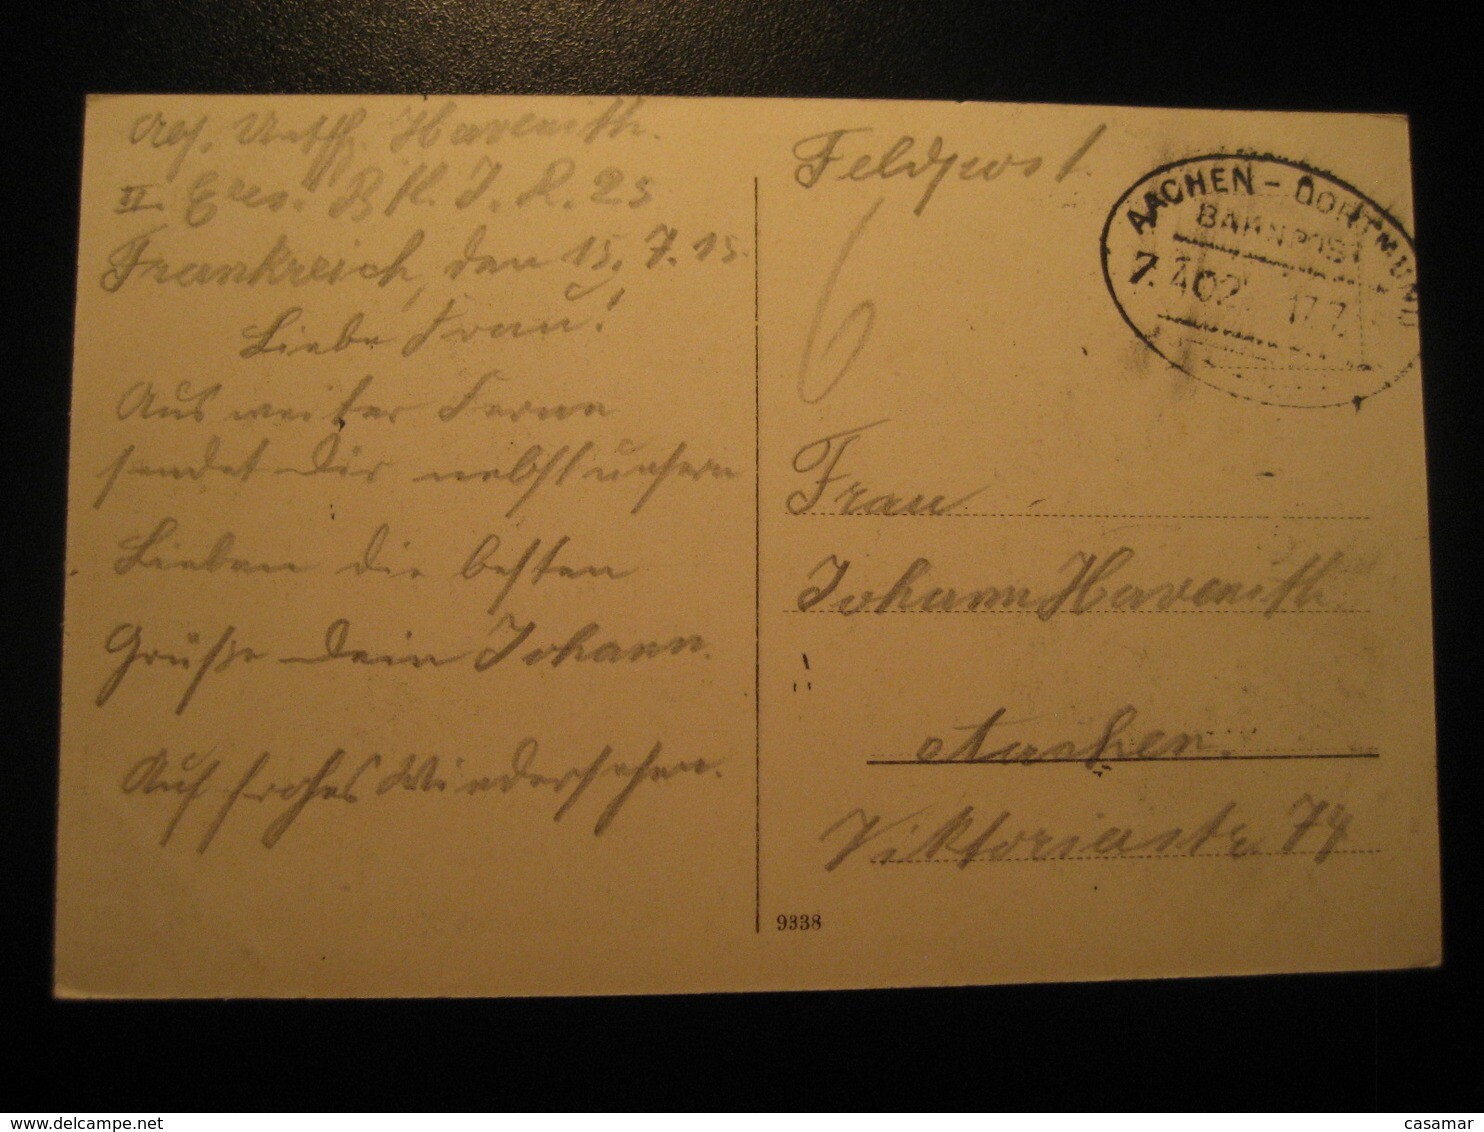 Untffz. Havenith.
II. Ers. Btl. I. R. 25
Frankreich, den 15.7.15.
Liebe Frau!
Aus weiter Ferne
sendet Dir nebst unsern
Lieben die besten
Grüße Dein Johann.
Auf frohes Wiedersehen.
Feldpost.
6
AACHEN - DORTMUND
BAHNPOST
7. 402 17.7.
Frau
Johann Havenith
Aachen.
Viktoriastr. 74
9338
delcampe.net
casamar